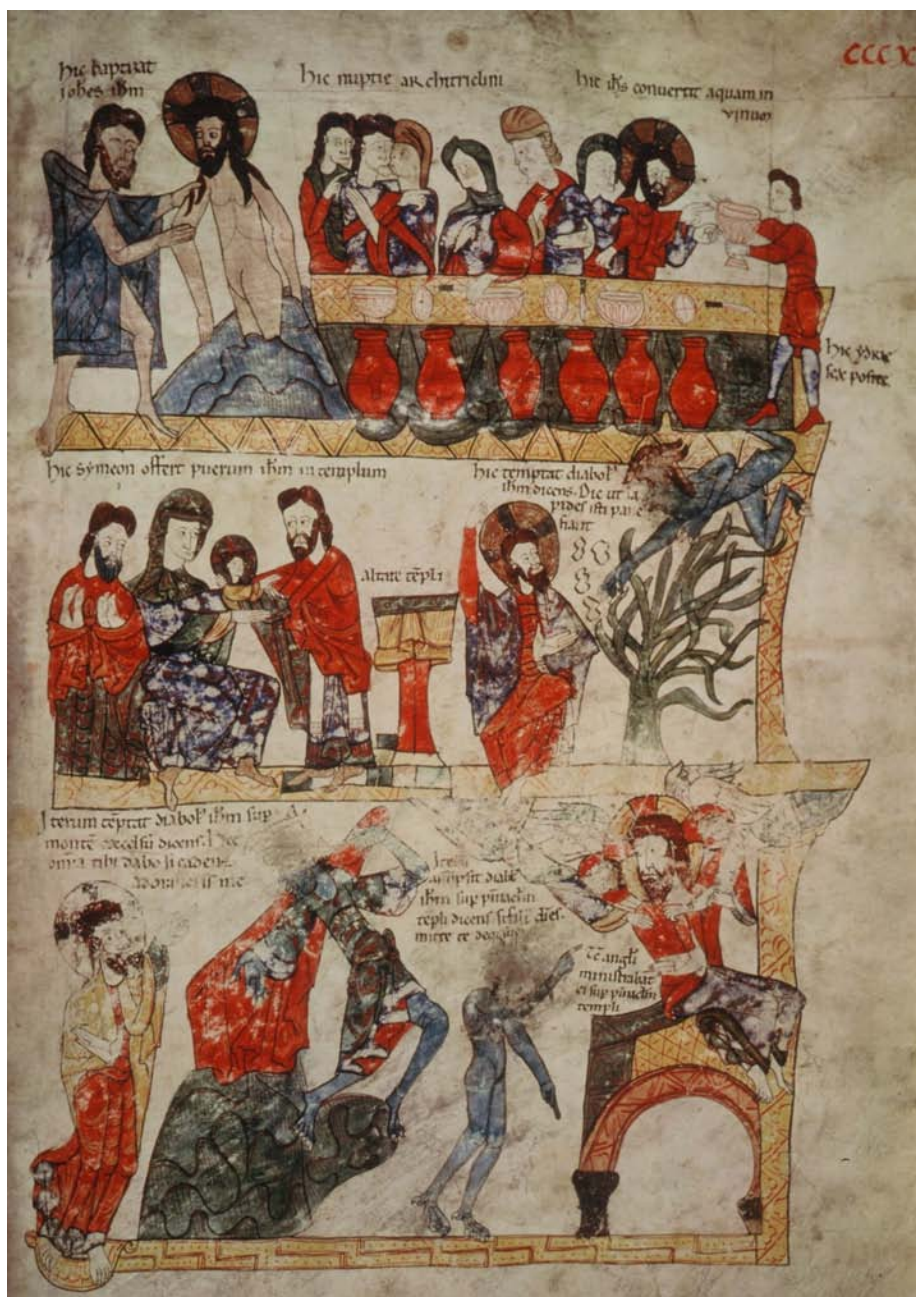 CCCX
hic baptizat
iohes ihm
hic nuptie architriclini
hic ihs convertit aquam in
vinum
hic ydrie
sex posite
hic symeon offert puerum ihm in templum
altare tepli
hic temptat diabol'
ihm dicens. Dic ut la
pides isti panes
fiant
Iterum teptat diabol' ihm sup
monte excelsu dicens. hec
omia tibi dabo si cadens
adoraveris me
assupsit diabl'
ihm sup pinaclm
tepli dicens. si fili' di es
mitte te deorsu
Tc angli
ministrabat
ei sup pinaclm
templi